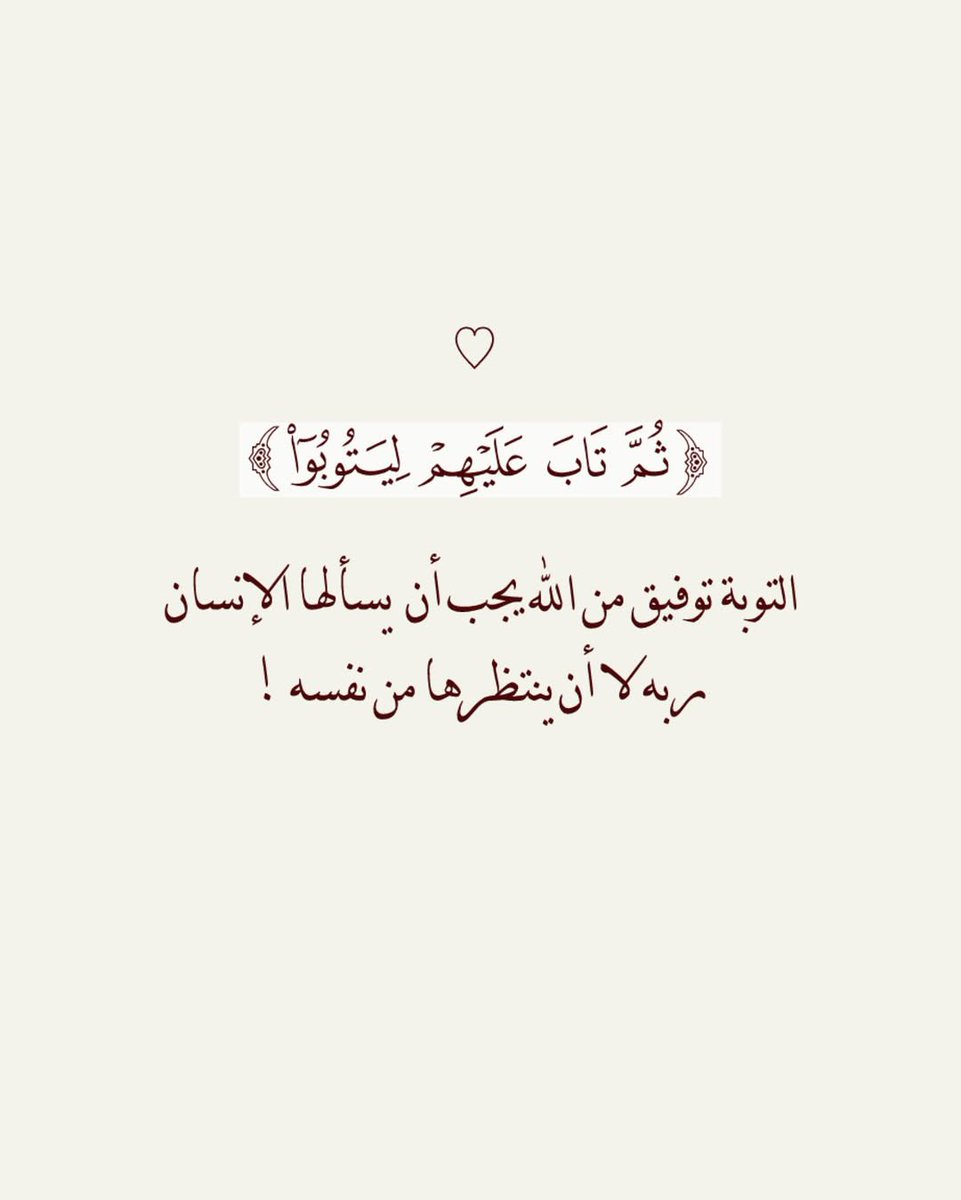 ﴿ ثُمَّ تَابَ عَلَيْهِمْ لِيَتُوبُوٓا۟ ﴾
التوبة توفيق من الله يجب أن يسألها الإنسان
ربه لا أن ينتظرها من نفسه !